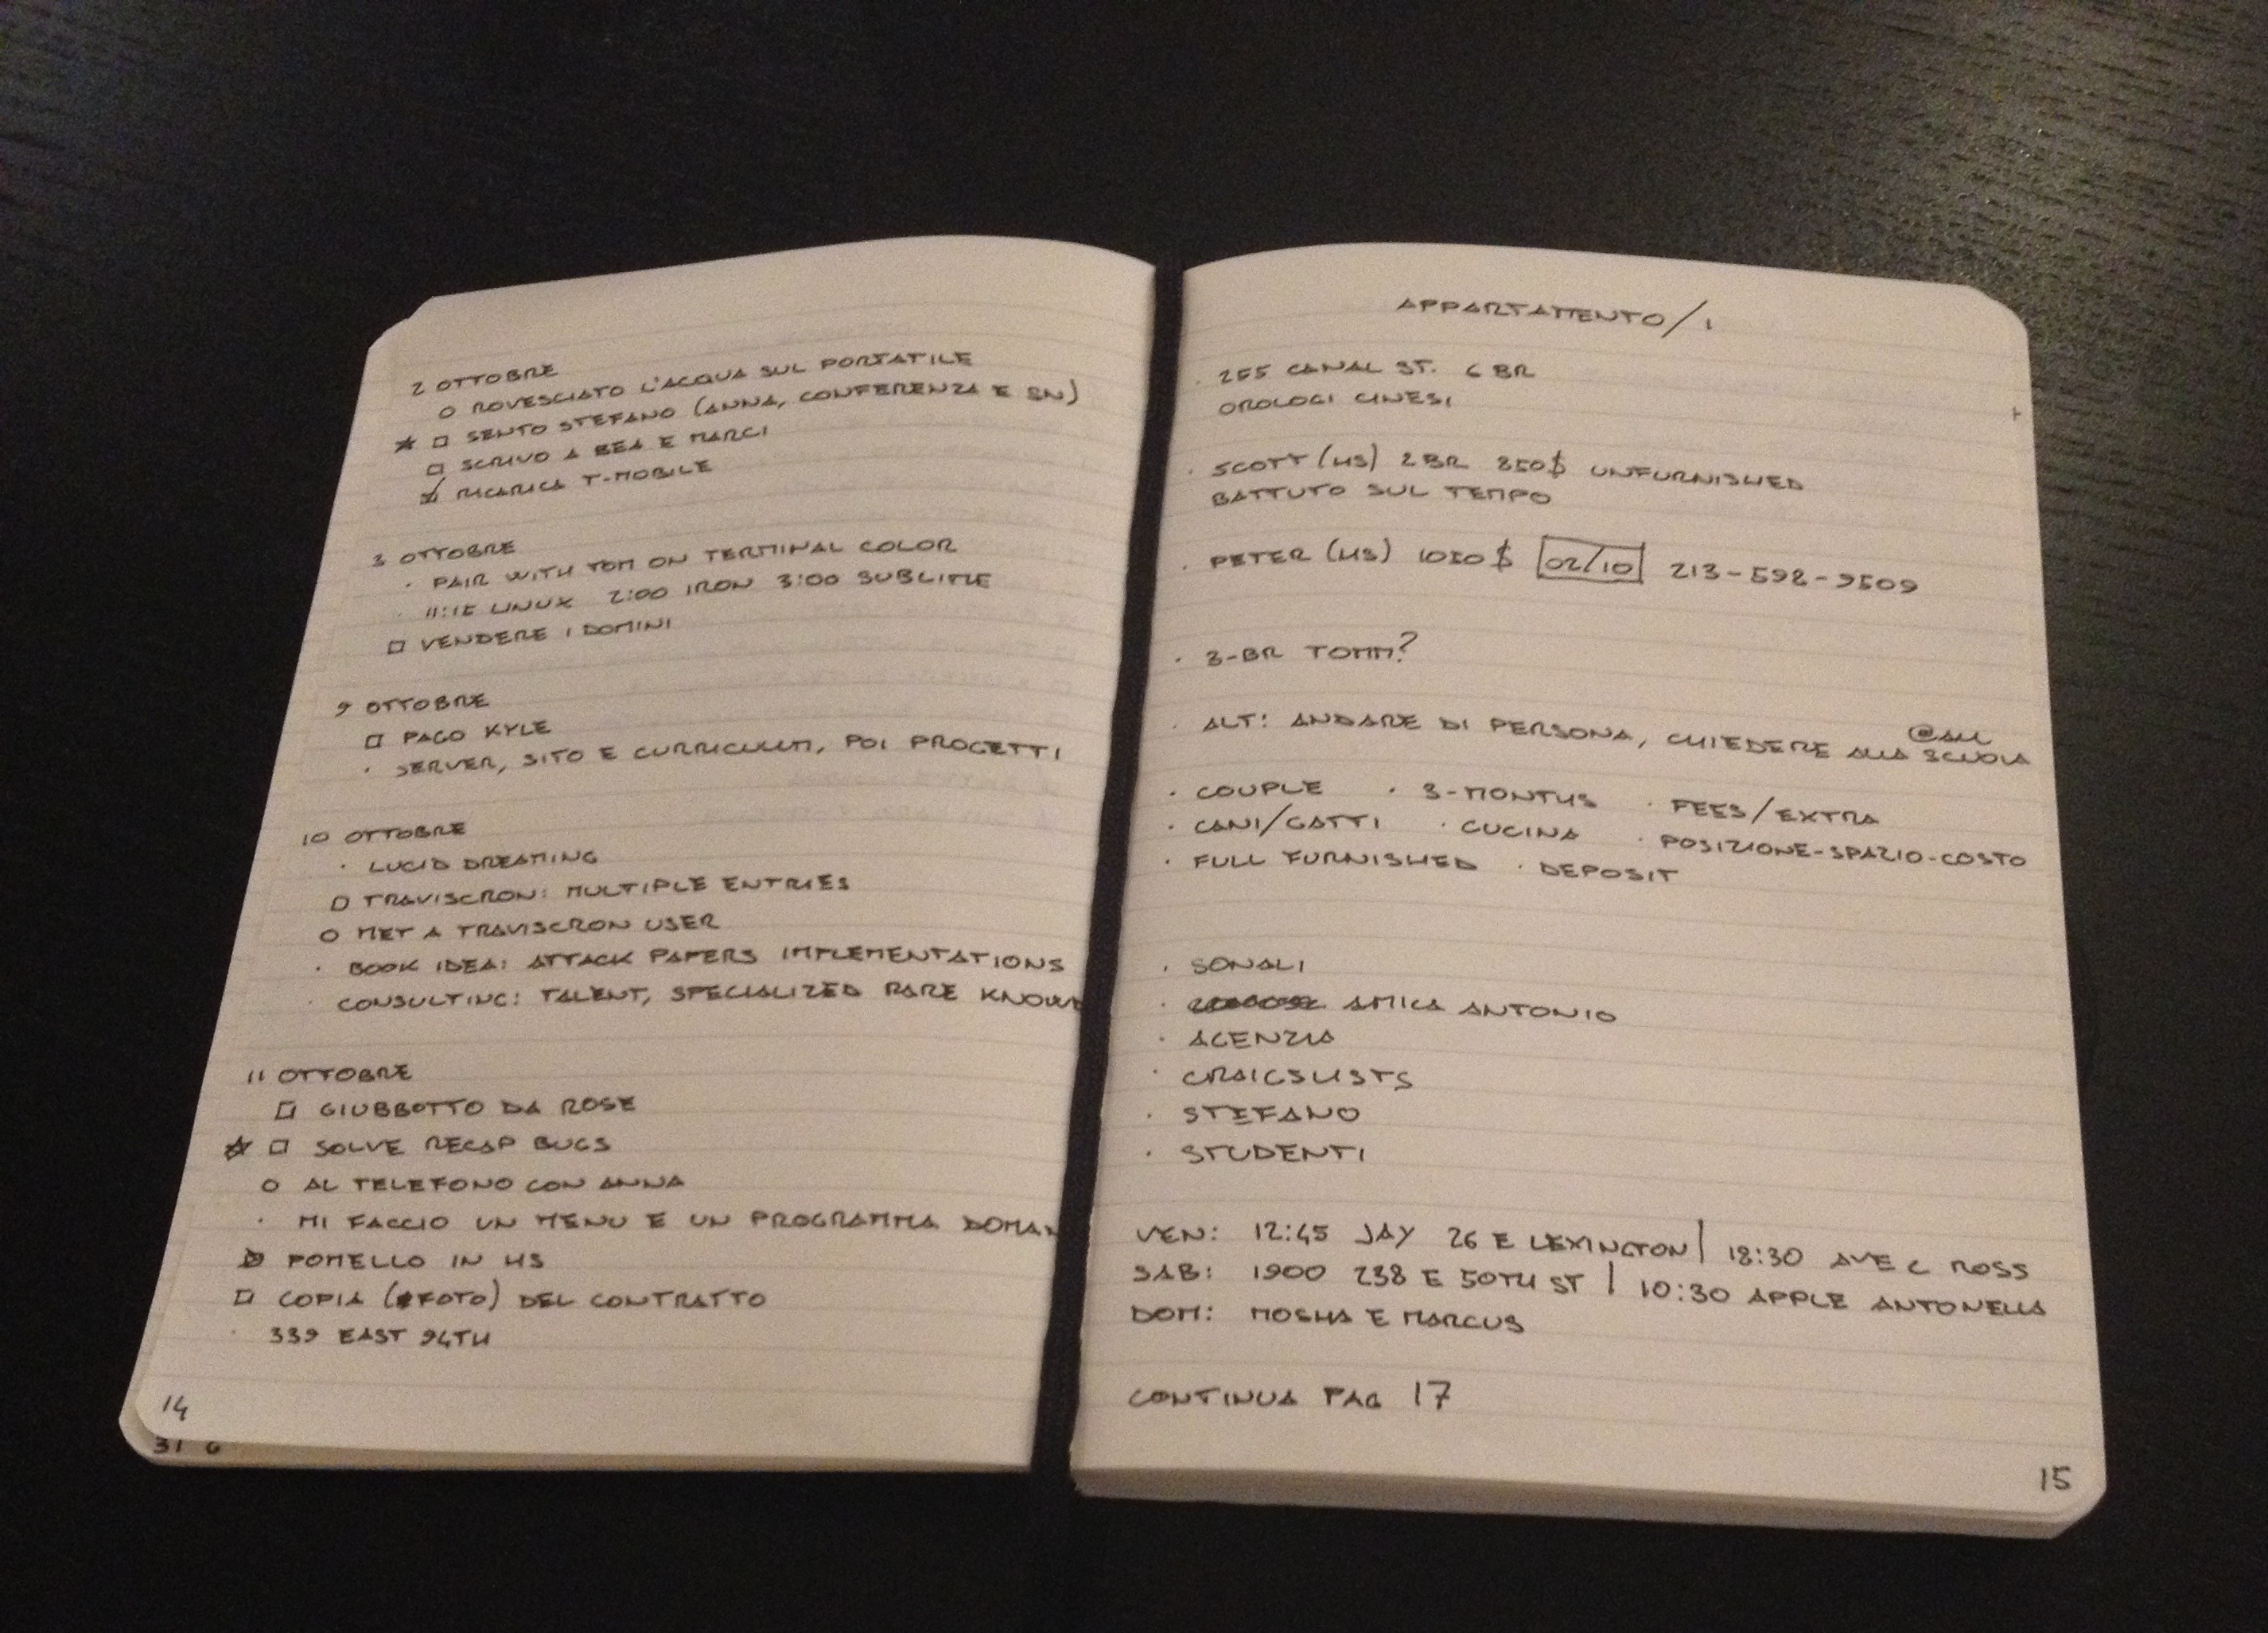 2 OTTOBRE
O ROVESCIATO L'ACQUA SUL PORTATILE
★ □ SENTO STEFANO (ANNA, CONFERENZA E SN)
□ SCRIVO A BEA E MARCI
☑ RICARICA T-MOBILE
3 OTTOBRE
· PAIR WITH TOM ON TERMINAL COLOR
· 11:15 LINUX 2:00 IRON 3:00 SUBLIME
□ VENDERE I DOMINI
9 OTTOBRE
□ PAGO KYLE
· SERVER, SITO E CURRICULUM, POI PROGETTI
10 OTTOBRE
· LUCID DREAMING
□ TRAVISCRON: MULTIPLE ENTRIES
O MET A TRAVISCRON USER
· BOOK IDEA: ATTACK PAPERS IMPLEMENTATIONS
· CONSULTING: TALENT, SPECIALIZED RARE KNOW
11 OTTOBRE
□ GIUBBOTTO DA ROSE
★ □ SOLVE RECAP BUGS
O AL TELEFONO CON ANNA
· MI FACCIO UN MENU E UN PROGRAMMA DOMAN
☑ POMELLO IN HS
□ COPIA (FOTO) DEL CONTRATTO
· 339 EAST 94TH
14
31 6
APPARTAMENTO/1
· 255 CANAL ST. 6 BR
OROLOGI CINESI
· SCOTT (HS) 2BR 850$ UNFURNISHED
BATTUTO SUL TEMPO
· PETER (HS) 1050$ 02/10 213-598-9509
· 3-BR TOMM?
@ALL
· ALT: ANDARE DI PERSONA, CHIEDERE ALLA SCUOLA
· COUPLE · 3-MONTHS · FEES/EXTRA
· CANI/GATTI · CUCINA · POSIZIONE-SPAZIO-COSTO
· FULL FURNISHED · DEPOSIT
· SONALI
· AMICA ANTONIO
· AGENZIA
· CRAIGSLISTS
· STEFANO
· STUDENTI
VEN: 12:45 JAY 26 E LEXINGTON | 18:30 AVE C ROSS
SAB: 1900 238 E 50TH ST | 10:30 APPLE ANTONELLA
DOM: MOSHA E MARCUS
CONTINUA PAG 17
15